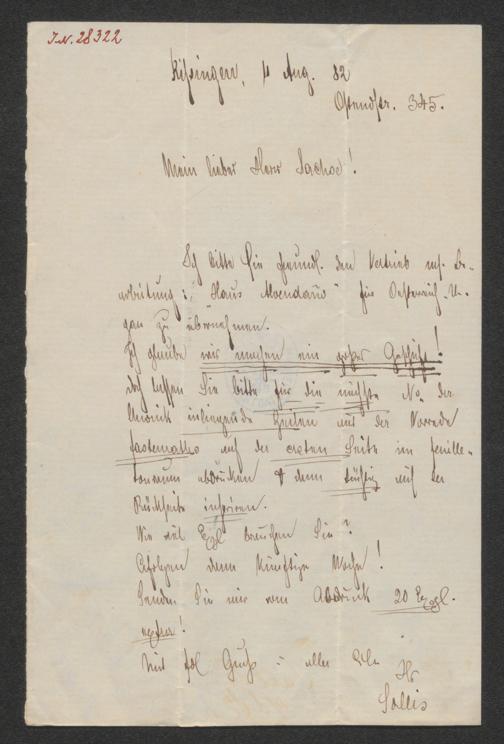 J.N. 28322
Kissingen, 11 Aug. 82
Ostendstr. 345.
Mein lieber Herr Sachse!
Ich bitte Sie freundl. den Vertrieb mr. Be-
arbeitung: "Haus" für Oesterreich-Un-
garn zu übernehmen.
Ich glaube wir machen ein großes Geschäft!
Doch lassen Sie bitte für die nächste No. der
Chronik inliegende Zeilen mit der Vorrede
auf der ersten Seite im Feuille-
ton abdrucken & dann tüchtig auf der
Rückseite inseriren.
Wie viel Expl brauchen Sie?
Erfolgen dann künftige Woche!
Senden Sie mir vom Abdruck 20 Expl.
Mit frdl Gruß in aller Eile
Ihr